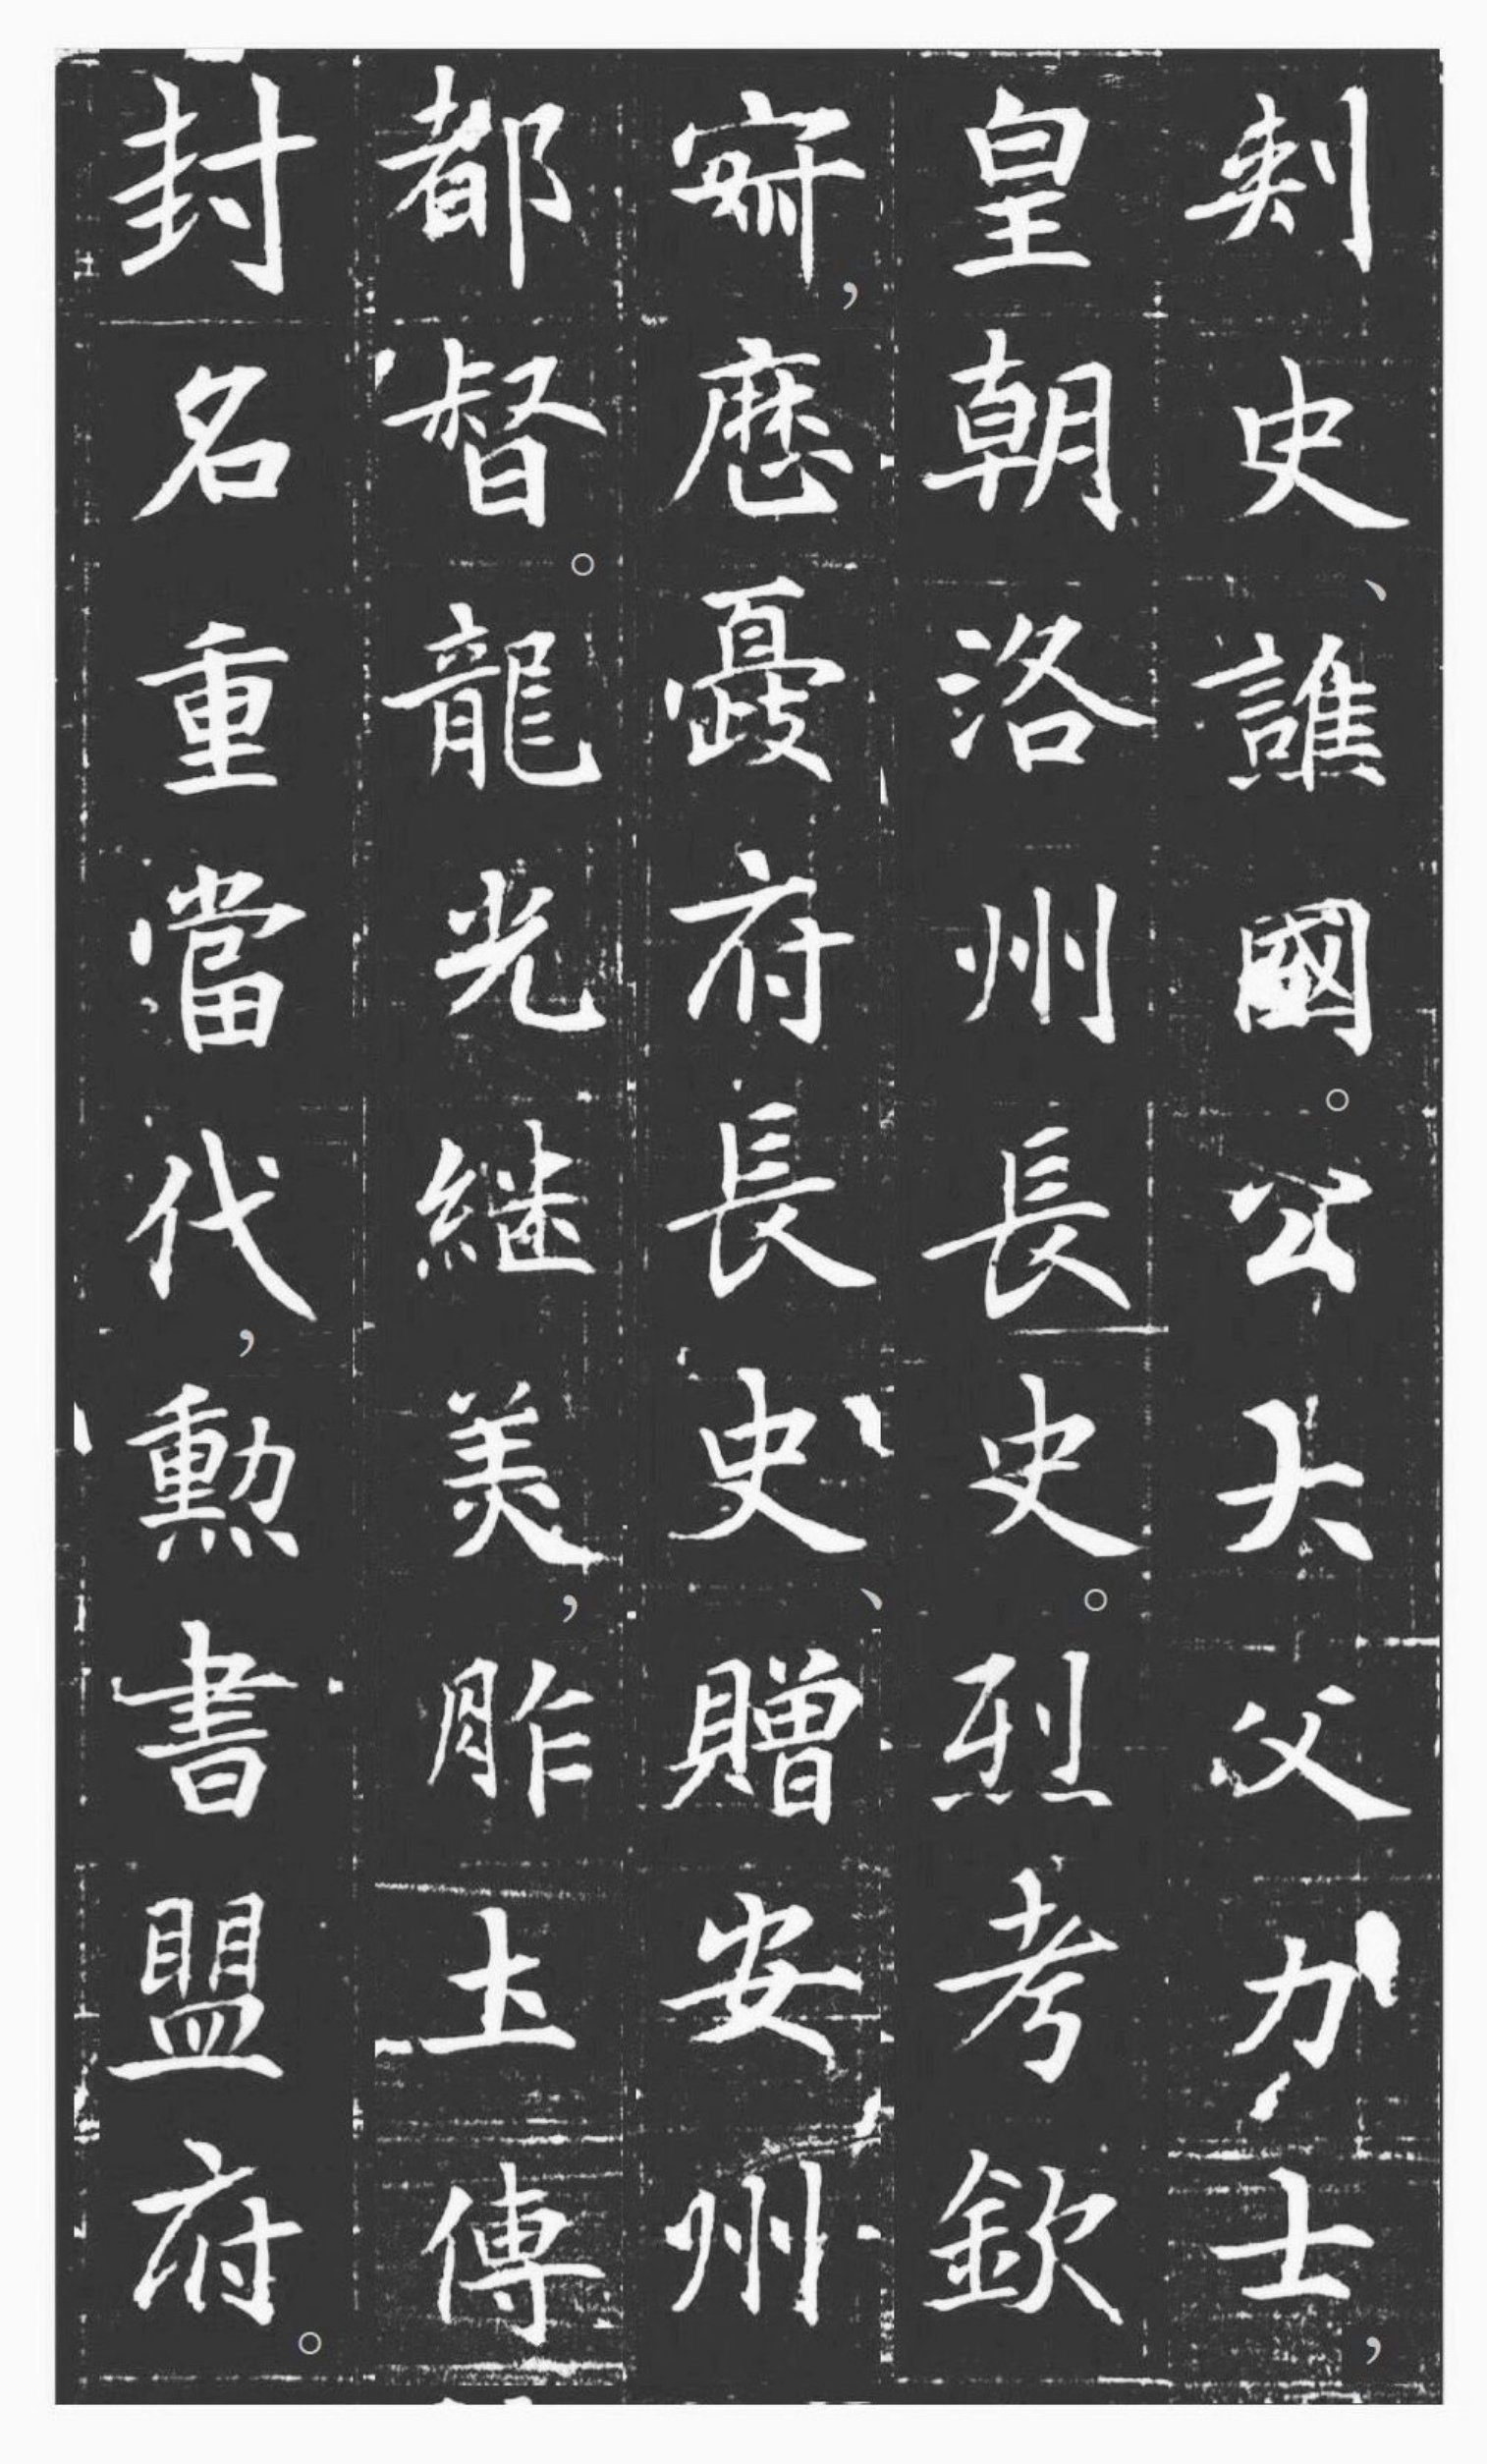 刾史、譙國。公大父力士，
皇朝洛州長史。烈考欽
寂，歷夔府長史、贈安州
都督。龍光継美，胙土傳
封名重當代，勲書盟府。